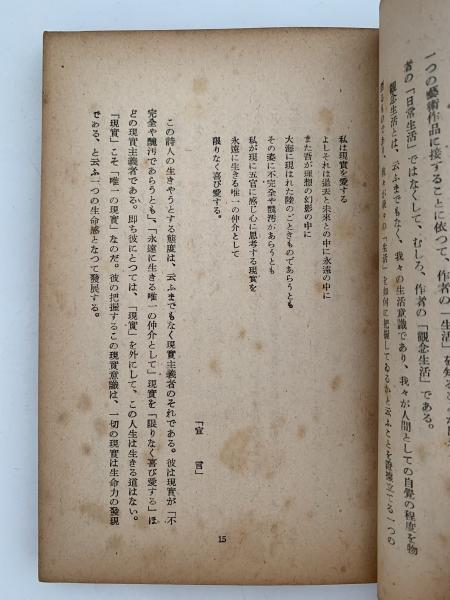 一つの藝術作品に接することに依つて、作者の「生活」を知る
者の「日常生活」ではなくして、むしろ、作者の「觀念生活」である。
觀念生活とは、云ふまでもなく、我々の生活意識であり、我々が人間としての自覺の程度を物
我々が彼々の「生活」を如何に把握してゐるかと云ふことを 一つの
私は現實を愛する
よしそれは過去と未來との中に永遠の中に
また吾が理想の幻影の中に
大海に現はれた陸のごときものであらうとも
その姿に不完全や醜汚があらうとも
私が現に五官に感じ心に思考する現實を
永遠に生きる唯一の仲介として
限りなく喜び愛する。
「宣言」
この詩人の生きやうとする態度は、云ふまでもなく現實主義者のそれである。彼は現實が「不
完全や醜汚であらうとも」、「永遠に生きる唯一の仲介として」現實を「限りなく喜び愛する」ほ
どの現實主義者である。即ち彼にとつては、「現實」を外にして、この人生は生きる道はない。
「現實」こそ「唯一の現實」なのだ。彼の把握するこの現實意識は、一切の現實は生命力の發現
である、と云ふ一つの生命感となつて發展する。
15